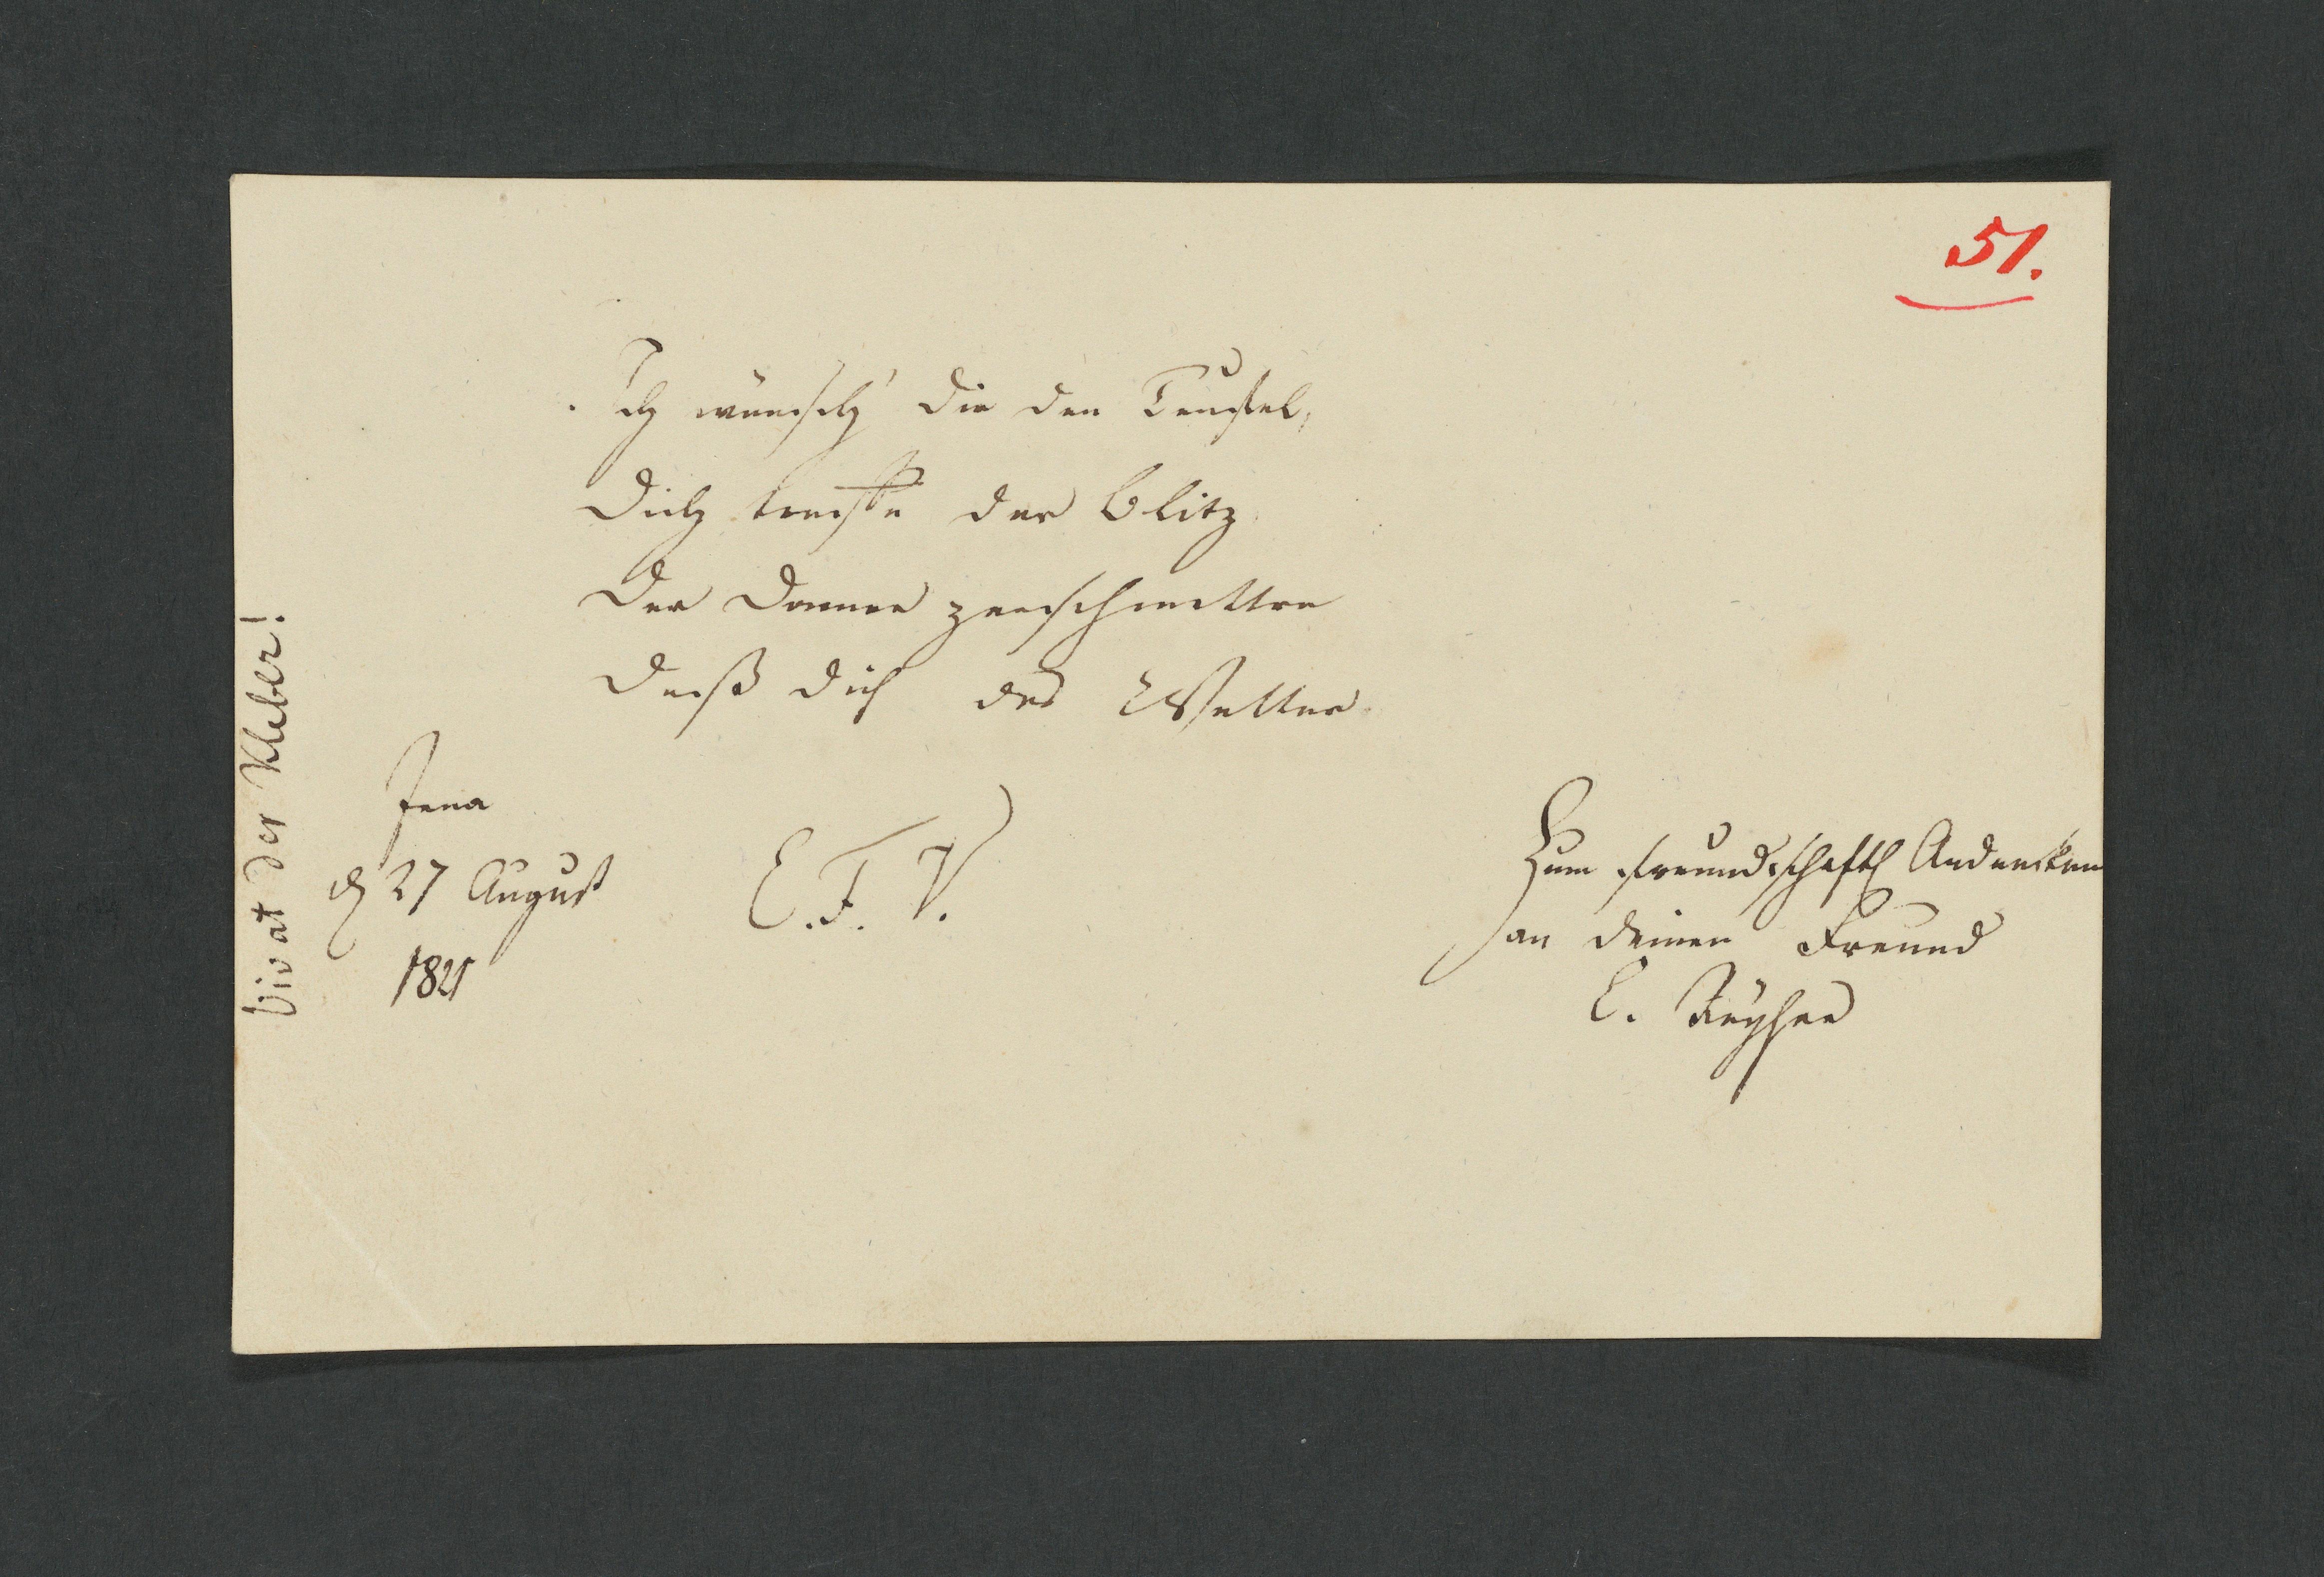 51.
Ich wünsch' dir den Teufel,
Dich treffe der Blitz
Der Donner zerschmettre
Daß dich das Wetter
Jena
d 27 August
1821
E. F. V.
Zum freundschaftl Andencken
an deinen Freund
Vivat der Kleber!